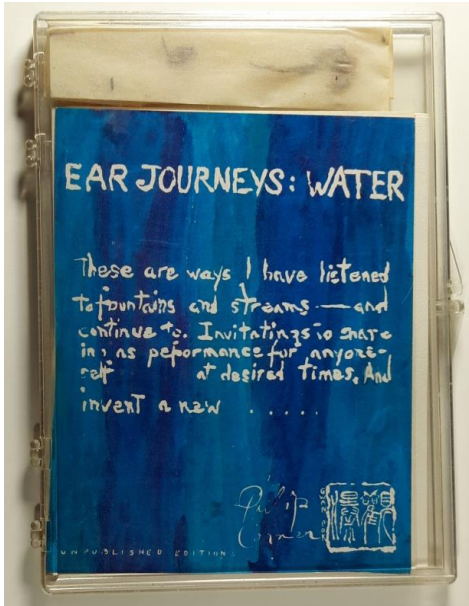 EAR JOURNEYS: WATER
These are ways I have listened
to fountains and streams — and
continue to. Invitatings to share
in, as peformance for anyone-
self at desired times. And
invent a new . . . . .
Philip
Corner
UNPUBLISHED EDITIONS